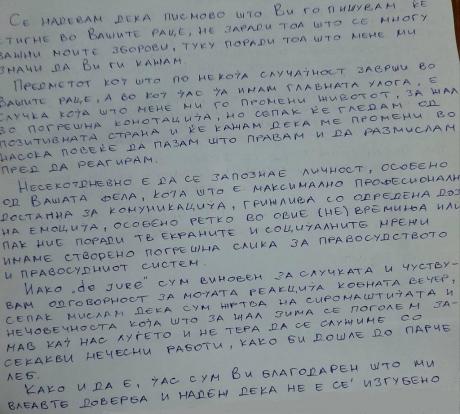 Се надевам дека писмово што Ви го пишувам ќе
стигне во Вашите раце, не заради тоа што се многу
важни моите зборови, туку поради тоа што мене ми
значи да Ви ги кажам.
Предметот кој што по некоја случајност заврши во
Вашите раце, а во кој јас ја имам главната улога, е
случка која што мене ми го промени животот, за жал
во погрешна конотација, но сепак ќе гледам од
позитивната страна и ќе кажам дека ме промени во
насока повеќе да пазам што правам и да размислам
пред да реагирам.
Несекојдневно е да се запознае личност, особено
од Вашата фела, која што е максимално професионалн
достапна за комуникација, грижлива со одредена доз
на емоција, особено ретко во овие (не) времиња или
пак ние поради ТВ екраните и социјалните мрежи
имаме створено погрешна слика за правосудството
и правосудниот систем.
Иако „de jure" сум виновен за случката и чуству-
вам одговорност за мојата реакција кобната вечер,
сепак мислам дека сум жртва на сиромаштијата и
нечовечноста која што за жал зима се поголем за-
мав кај нас луѓето и не тера да се служиме со
секакви нечесни работи, како би дошле до парче
леб.
Како и да е, јас сум Ви благодарен што ми
влеавте доверба и надеж дека не е сѐ изгубено